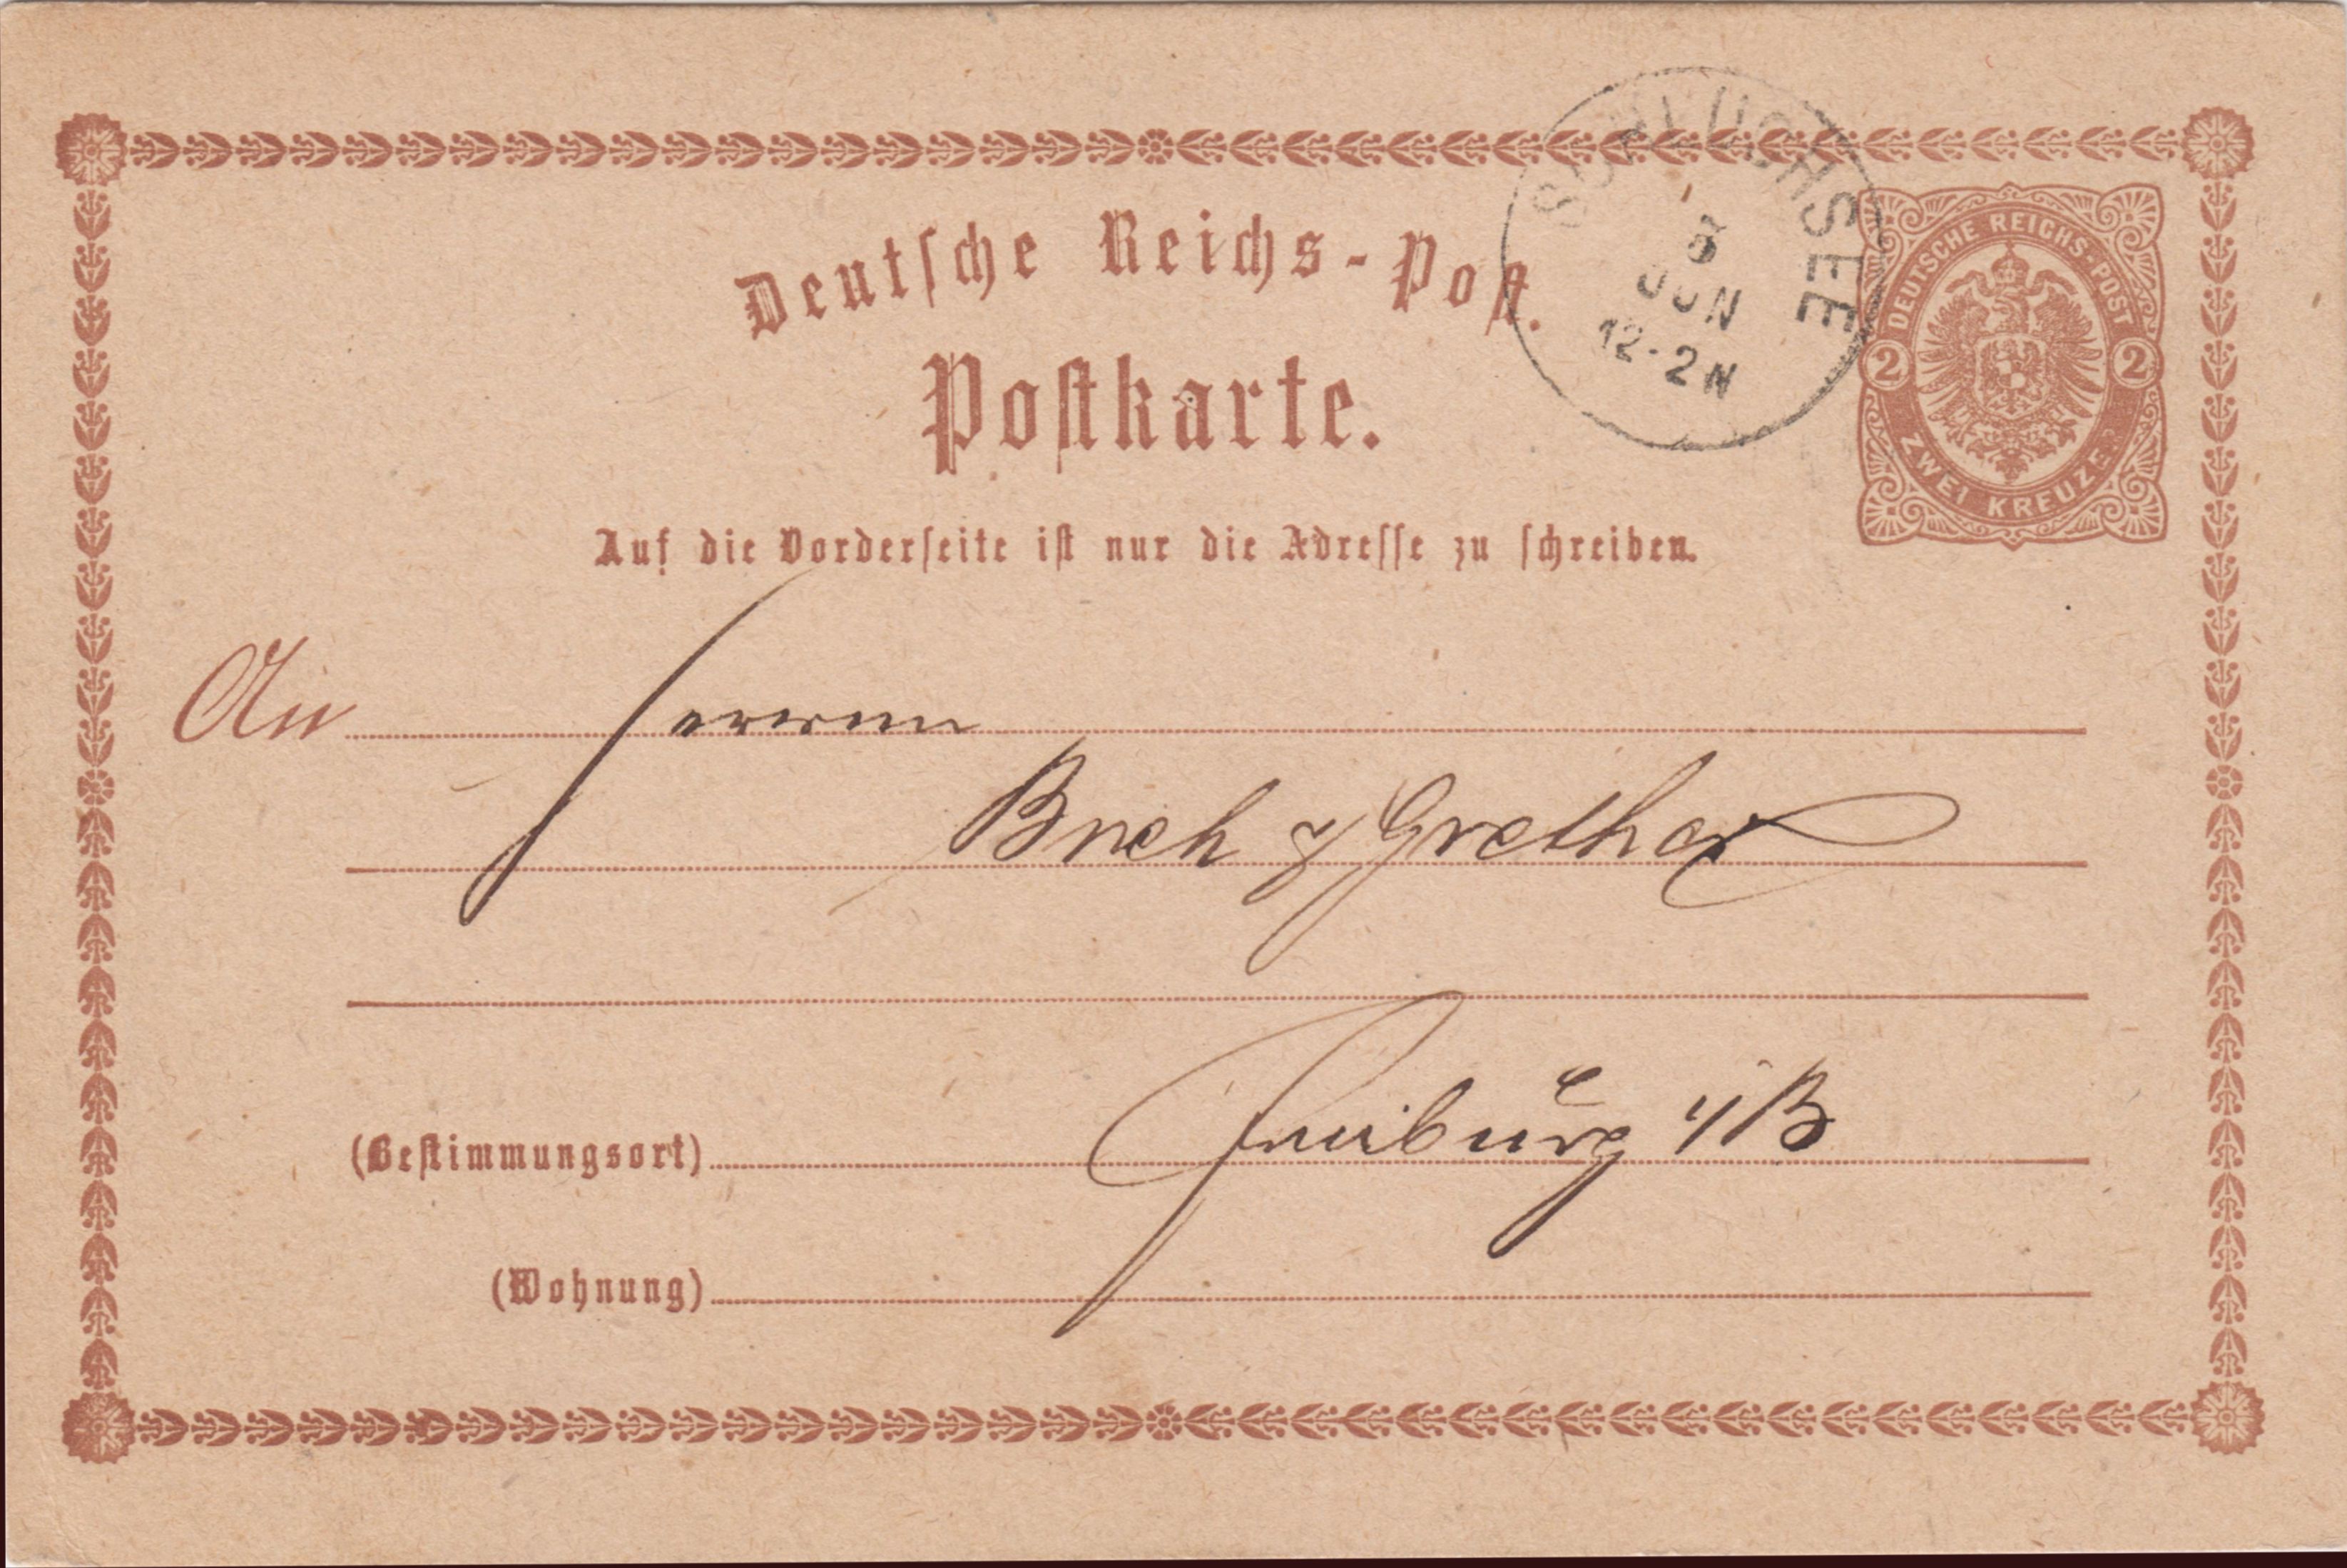 Deutsche Reichs-Post.
Postkarte.
SCHLUCHSEE
JUN
12-2N
DEUTSCHE REICHS-POST
2 2
ZWEI KREUZER
Auf die Vorderseite ist nur die Adresse zu schreiben.
An Herren
& Grether
(Bestimmungsort) Freiburg i/B
(Wohnung)